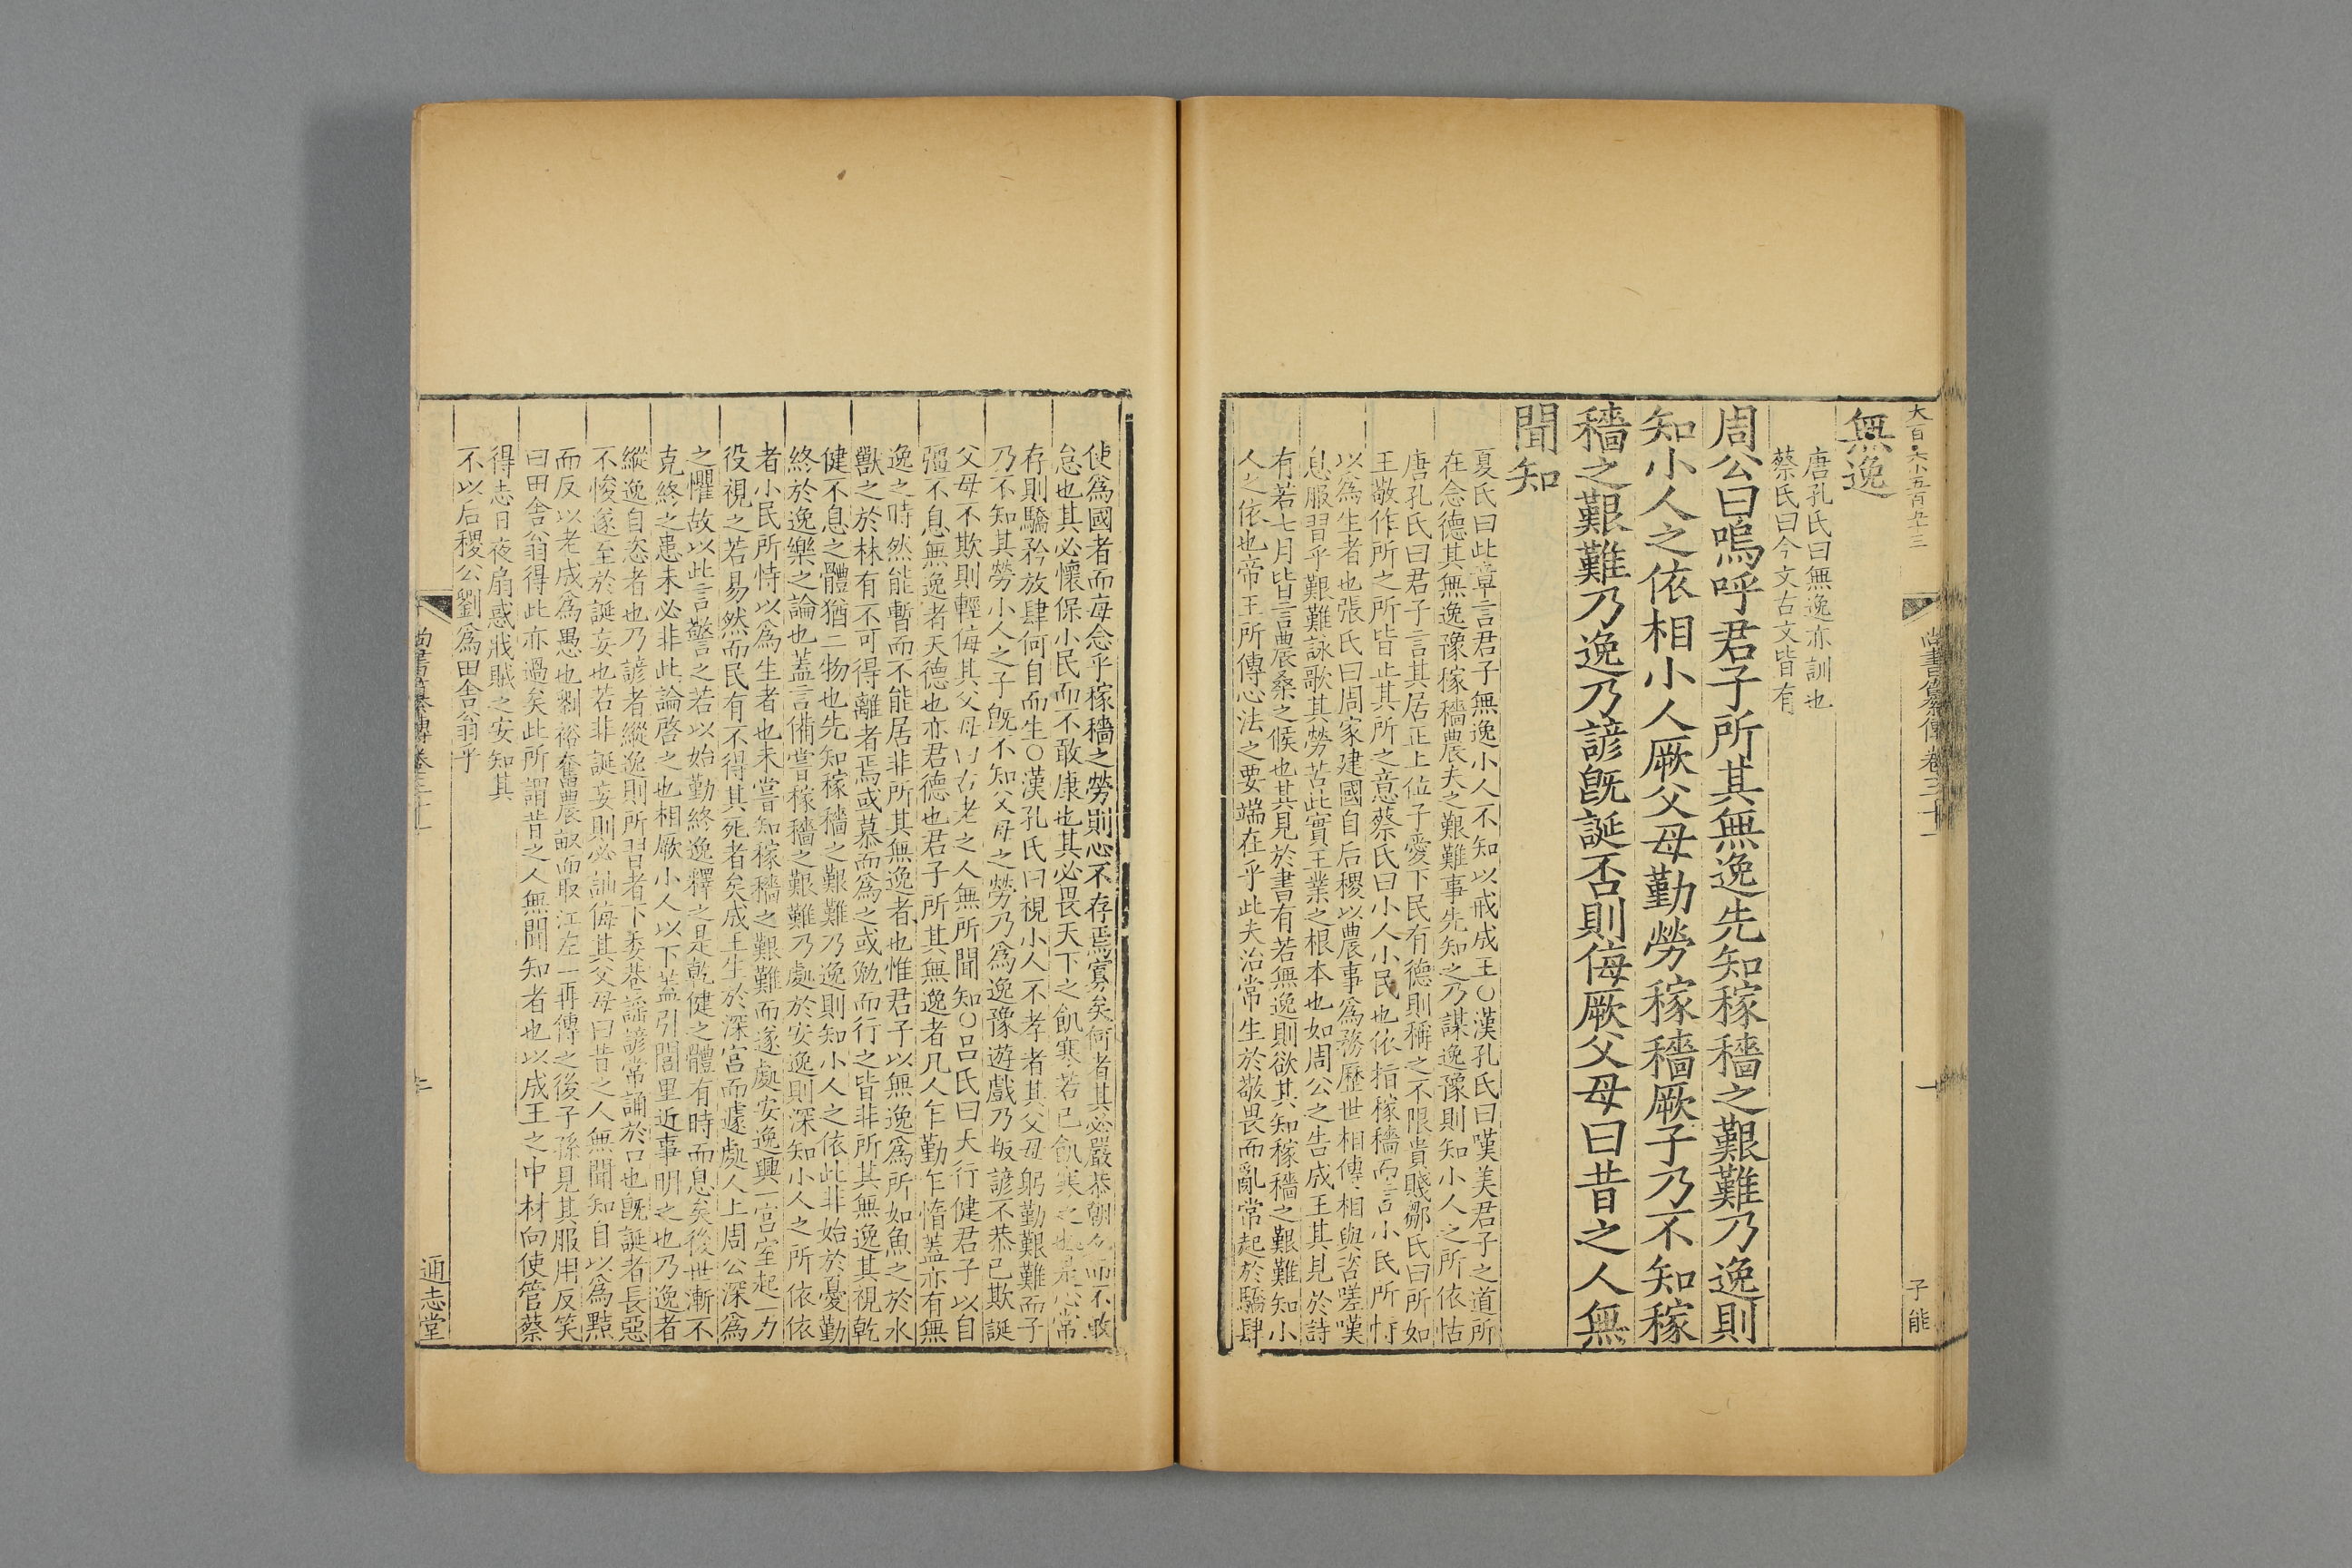 大百六小五百九三
尚書纂傳卷三十一
一
子能
無逸
唐孔氏曰無逸亦訓也
蔡氏曰今文古文皆有
周公曰嗚呼君子所其無逸先知稼穡之艱難乃逸則
知小人之依相小人厥父母勤勞稼穡厥子乃不知稼
穡之艱難乃逸乃諺旣誕否則侮厥父母曰昔之人無
聞知
夏氏曰此章言君子無逸小人不知以戒成王○漢孔氏曰嘆美君子之道所
在念德其無逸豫稼穡農夫之艱難事先知之乃謀逸豫則知小人之所依怙
唐孔氏曰君子言其居正上位子愛下民有德則稱之不限貴賤鄒氏曰所如
王敬作所之所皆止其所之意蔡氏曰小人小民也依指稼穡而言小民所恃
以爲生者也張氏曰周家建國自后稷以農事爲務歷世相傳相與咨嗟嘆
息服習乎艱難詠歌其勞苦此實王業之根本也如周公之告成王其見於詩
有若七月皆言農桑之候也其見於書有若無逸則欲其知稼穡之艱難知小
人之依也帝王所傳心法之要端在乎此夫治常生於敬畏而亂常起於驕肆
使爲國者而每念乎稼穡之勞則心不存焉寡矣何者其必嚴恭朝夕而不敢
怠也其必懷保小民而不敢康也其必畏天下之飢寒若已飢寒之也是心常
存則驕矜放肆何自而生○漢孔氏曰視小人不孝者其父母躬勤艱難而子
乃不知其勞小人之子旣不知父母之勞乃爲逸豫遊戲乃叛諺不恭已欺誕
父母不欺則輕侮其父母曰古老之人無所聞知○呂氏曰天行健君子以自
彊不息無逸者天德也亦君德也君子所其無逸者凡人乍勤乍惰蓋亦有無
逸之時然能暫而不能居非所其無逸者也惟君子以無逸爲所如魚之於水
獸之於林有不可得離者焉或慕而爲之或勉而行之皆非所其無逸其視乾
健不息之體猶二物也先知稼穡之艱難乃逸則知小人之依此非始於憂勤
終於逸樂之論也蓋言備嘗稼穡之艱難乃處於安逸則深知小人之所依依
者小民所恃以爲生者也未嘗知稼穡之艱難而遂處安逸興一宮室起一力
役視之若易然而民有不得其死者矣成王生於深宮而遽處人上周公深爲
之懼故以此言警言之若以始勤終逸釋之是乾健之體有時而息矣後世漸不
克終之患未必非此論啓之也相厥小人以下蓋引閭里近事明之也乃逸者
縱逸自恣者也乃諺者縱逸則所習者下委巷謡諺常誦於口也旣誕者長惡
不悛遂至於誕妄也若非誕妄則必訕侮其父母曰昔之人無聞知自以爲黠
而反以老成爲愚也劉裕奮農畝而取江左一再傳之後子孫見其服用反笑
曰田舍翁得此亦過矣此所謂昔之人無聞知者也以成王之中材向使管蔡
得志日夜扇惑戕賊之安知其
不以后稷公劉爲田舍翁乎
尚書纂傳卷三十一
通志堂